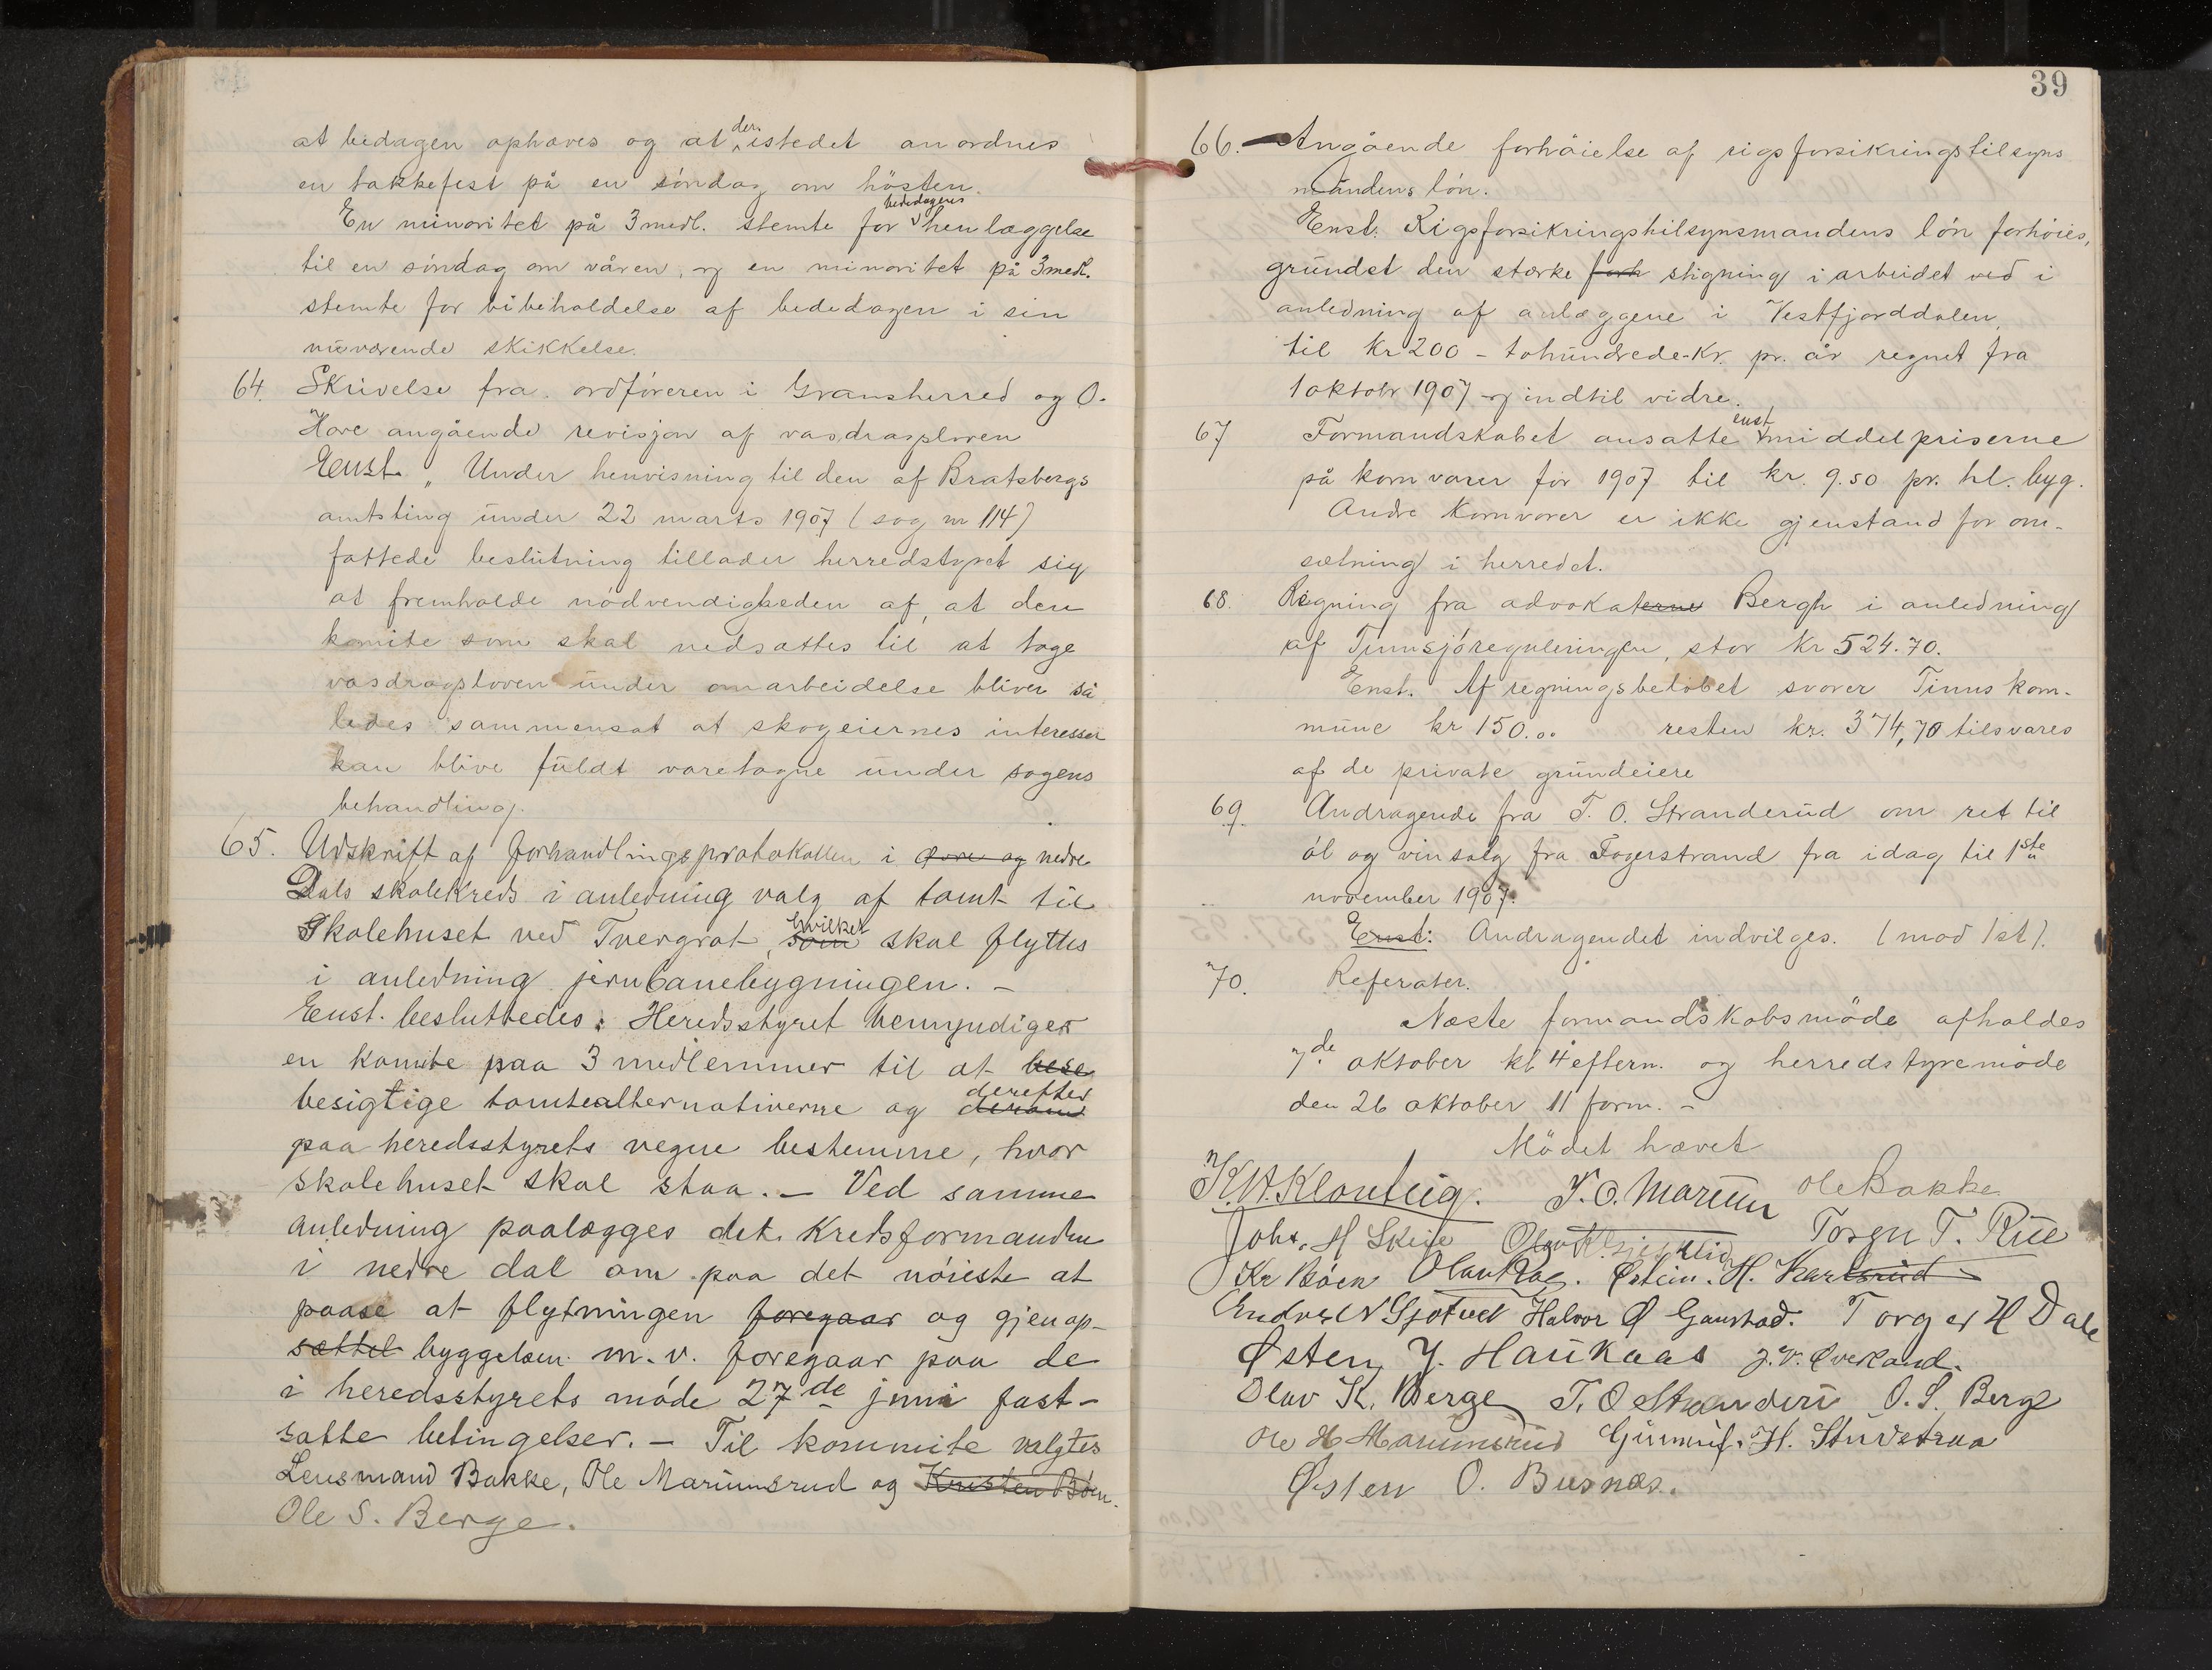 at bedagen ophæves og at der istedet anordnes
en takkefest på en søndag om høsten.
En minoritet på 3 medl. stemte for bededagens henlæggelse
til en søndag om våren, og en minoritet på 3 medl.
stemte for bibeholdelse af bededagen i sin
nuværende skikkelse.
64. Skrivelse fra ordføreren i Gransherred og O.
Hove angående revisjon af vasdragsloven
Enst. „Under henvisning til den af Bratsbergs
amtsting under 22 marts 1907 (sag nr 114)
fattede beslutning tillader herredstyret sig
at fremholde nødvendigheden af, at den
komite som skal nedsættes til at tage
vasdragsloven under omarbeidelse bliver så
ledes sammensat at skogeiernes interesser
kan blive fuldt varetagne under sagens
behandling.
65. Udskrift af forhandlingsprotokollen i øvre og nedre
Dals skolekreds i anledning valg af tomt til
Skolehuset ved Tvergrot, som hvilket skal flyttes
i anledning jernbanebygningen. –
Enst. besluttedes: Heredsstyret bemyndiger
en komite paa 3 medlemmer til at bese
besigtige tomtealternativerne og derom derefter
paa heredsstyrets vegne bestemme, hvor
skolehuset skal staa. – Ved samme
anledning paalægges det Kredsformanden
i nedre dal om paa det nøieste at
paase at flytningen foregaar og gjenop-
sættel byggelsen m.v. foregaar paa de
i heredsstyrets møde 27de juni fast-
satte betingelser. – Til kommite valgtes
Lensmand Bakke, Ole Marumsrud og Kristen Bøen.
Ole S. Berge.
39
66. – Angående forhøielse af rigsforsikringstilsyns
mandens løn.
Enst. Rigsforsikringstilsynsmandens løn forhøies,
grundet den stærke forh stigning i arbeidet ved i
anledning af anlæggene i Vestfjorddalen,
til Kr 200 – tohundrede-Kr. pr. år regnet fra
1 oktobr 1907 og indtil vidre.
67 Formandskabet ansatte enst middelpriserne
på kornvarer for 1907 til kr. 9.50 pr. hl. byg.
Andre Kornvarer er ikke gjenstand for om-
sætning i herredet.
68. Regning fra advokaterne Bergh i anledning
af Tinnsjøreguleringen, stor Kr 524.70.
Enst. Af regningsbeløbet svarer Tinns kom-
mune kr 150.00 resten kr. 374,70 tilsvares
af de private grundeiere
69. Andragende fra T. O. Stranderud om ret til
øl og vinsalg fra Fagerstrand fra idag til 1ste
november 1907.
Enst: Andragendet indvilges. (mod 1 st).
70. Referater.
Næste formandskabsmøde afholdes
7de oktober kl 4 eftern. og herredstyremøde
den 26 oktober 11 form. –
Mødet hævet
K. A. Klonteig. T. O. Marum Ole Bakke
Johs. H Skeie Torgn T. Rue
Kr Bøen Olav Østein. H. Karlsrud
Halvor Ø Gaustad. Torger H Dale
Østen J. Haukaas J. V. Øverland.
Olav K. Berge T. O Stranderu O. S. Berge
Ole H Marumsrud Gunnuf. H. Studetraa
Østen O. Busnæs.